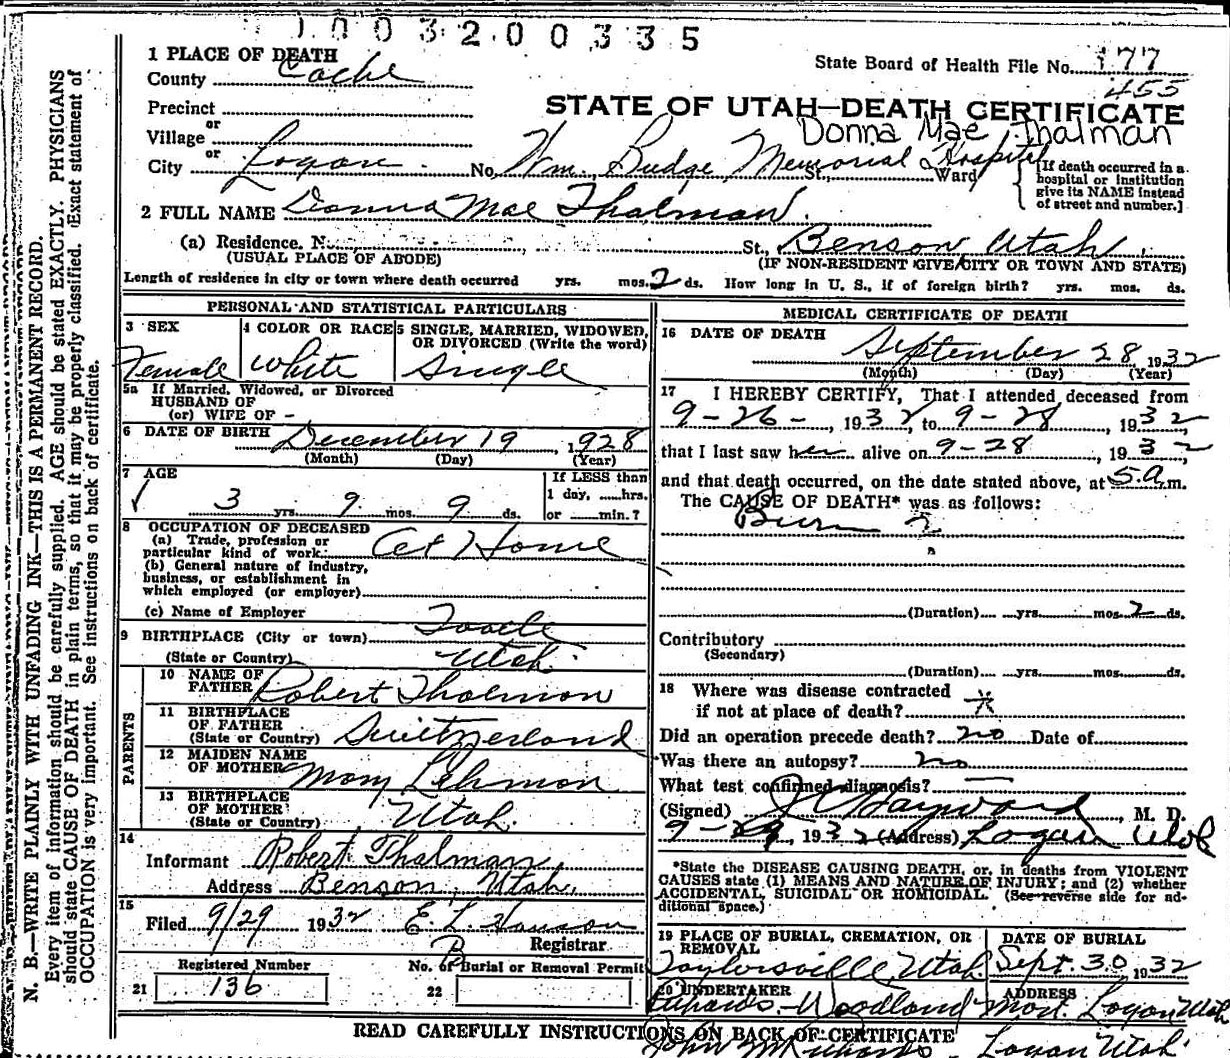 1003200335
1 PLACE OF DEATH
County Cache
State Board of Health File No. 177
455
Precinct
or
Village
or
City Logan
STATE OF UTAH—DEATH CERTIFICATE
Donna Mae Thalman
No. Wm. Budge Memorial Hospital St., Ward
[If death occurred in a
hospital or institution
give its NAME instead
of street and number.]
2 FULL NAME Donna Mae Thalman.
(a) Residence. No. St., Benson Utah
(USUAL PLACE OF ABODE)
(IF NON-RESIDENT GIVE CITY OR TOWN AND STATE)
Length of residence in city or town where death occurred yrs. mos. 2 ds. How long in U. S., if of foreign birth? yrs. mos. ds.
PERSONAL AND STATISTICAL PARTICULARS
3 SEX
Female
4 COLOR OR RACE
White
5 SINGLE, MARRIED, WIDOWED,
OR DIVORCED (Write the word)
Single
5a If Married, Widowed, or Divorced
HUSBAND OF
(or) WIFE OF -
6 DATE OF BIRTH December 19, 1928
(Month) (Day) (Year)
7 AGE
3 yrs. 9 mos. 9 ds.
If LESS than
1 day, ......hrs.
or ......min.?
8 OCCUPATION OF DECEASED
(a) Trade, profession or
particular kind of work: At Home
(b) General nature of industry,
business, or establishment in
which employed (or employer)
(c) Name of Employer
9 BIRTHPLACE (City or town) Tooele
(State or Country) Utah.
PARENTS
10 NAME OF
FATHER Robert Thalman
11 BIRTHPLACE
OF FATHER
(State or Country) Switzerland
12 MAIDEN NAME
OF MOTHER Mary Lehman
13 BIRTHPLACE
OF MOTHER
(State or Country) Utah.
14
Informant Robert Thalman,
Address Benson, Utah,
15
Filed 9/29 1932 E. L. Hanson
Registrar
Registered Number
21 136
No. of Burial or Removal Permit
22
MEDICAL CERTIFICATE OF DEATH
16 DATE OF DEATH
September 28, 1932
(Month) (Day) (Year)
17 I HEREBY CERTIFY, That I attended deceased from
9-26-, 1932, to 9-28, 1932
that I last saw her alive on 9-28, 1932,
and that death occurred, on the date stated above, at 5 a.m.
The CAUSE OF DEATH* was as follows:
Burn
(Duration) yrs. mos. 2 ds.
Contributory
(Secondary)
(Duration) yrs. mos. ds.
18 Where was disease contracted
if not at place of death?
Did an operation precede death? no Date of
Was there an autopsy? no
What test confirmed diagnosis? —
(Signed) Hayward, M. D.
9-29, 1932 (Address) Logan Utah
*State the DISEASE CAUSING DEATH, or, in deaths from VIOLENT
CAUSES state (1) MEANS AND NATURE OF INJURY; and (2) whether
ACCIDENTAL, SUICIDAL OR HOMICIDAL. (See reverse side for ad-
ditional space.)
19 PLACE OF BURIAL, CREMATION, OR
REMOVAL
Taylorsville, Utah.
DATE OF BURIAL
Sept. 30 1932
20 UNDERTAKER
Woodland Mort.
ADDRESS
Logan Utah
READ CAREFULLY INSTRUCTIONS ON BACK OF CERTIFICATE
John Logan Utah.
N. B.—WRITE PLAINLY WITH UNFADING INK—THIS IS A PERMANENT RECORD.
Every item of information should be carefully supplied. AGE should be stated EXACTLY. PHYSICIANS
should state CAUSE OF DEATH in plain terms, so that it may be properly classified. Exact statement of
OCCUPATION is very important. See instructions on back of certificate.